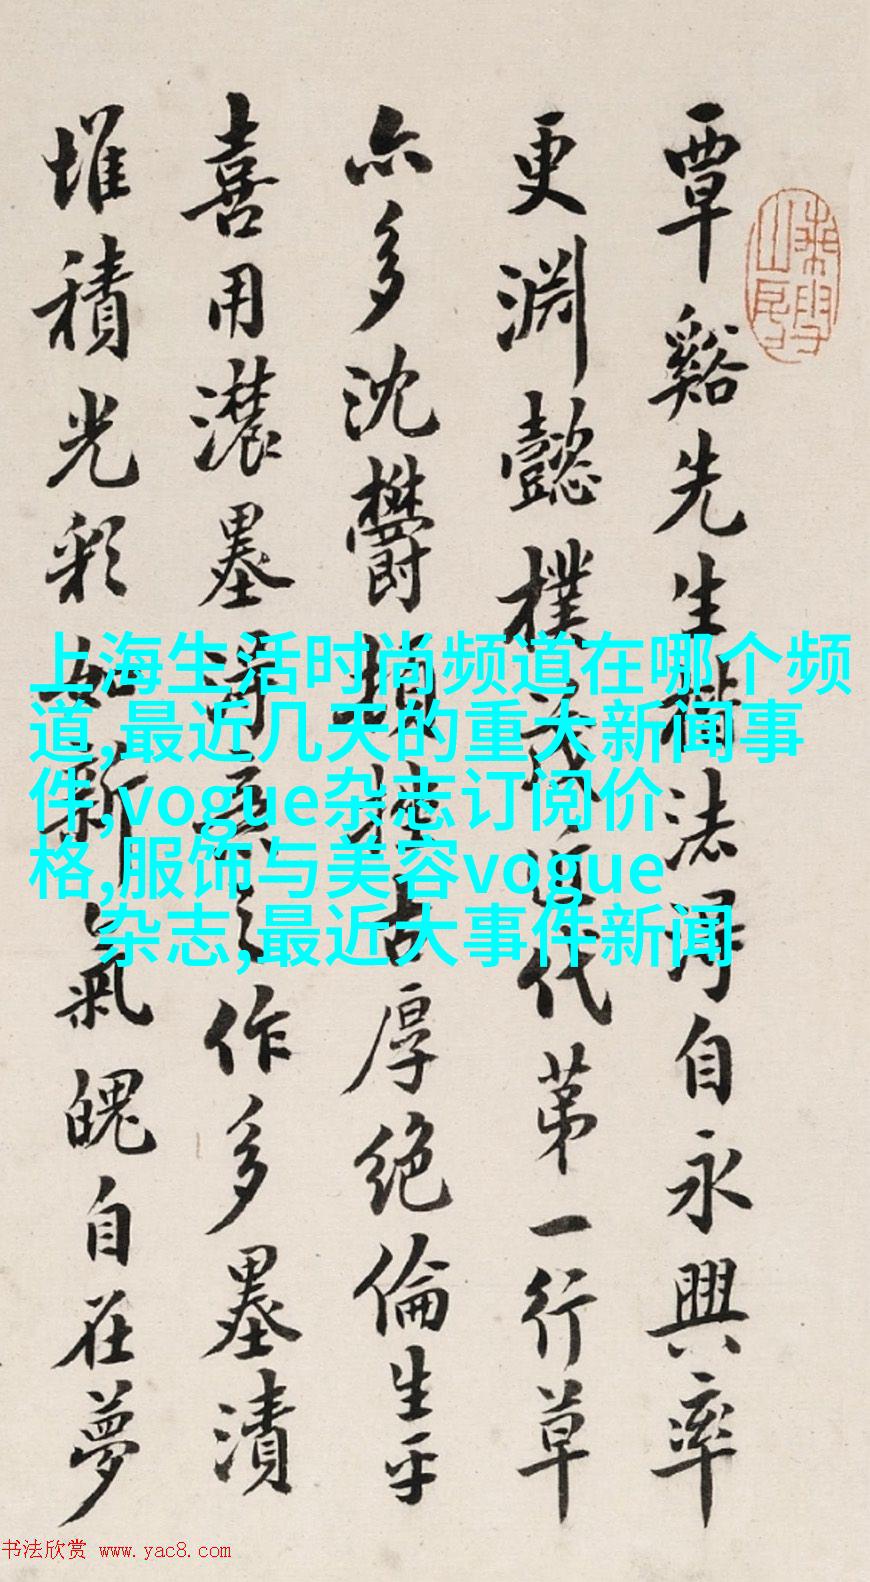 覃谿先生楷法得自永興率
更淵懿樸茂近代第一行草
亦多沈鬱頓挫古厚絕倫生平
喜用濃墨得意之作多墨漬
堆積光彩如新氣魄自在夢
上海生活时尚频道在哪个频
道,最近几天的重大新闻事
件,vogue杂志订阅价
格,服饰与美容vogue
杂志,最近大事件新闻
书法欣赏 www.yac8.com